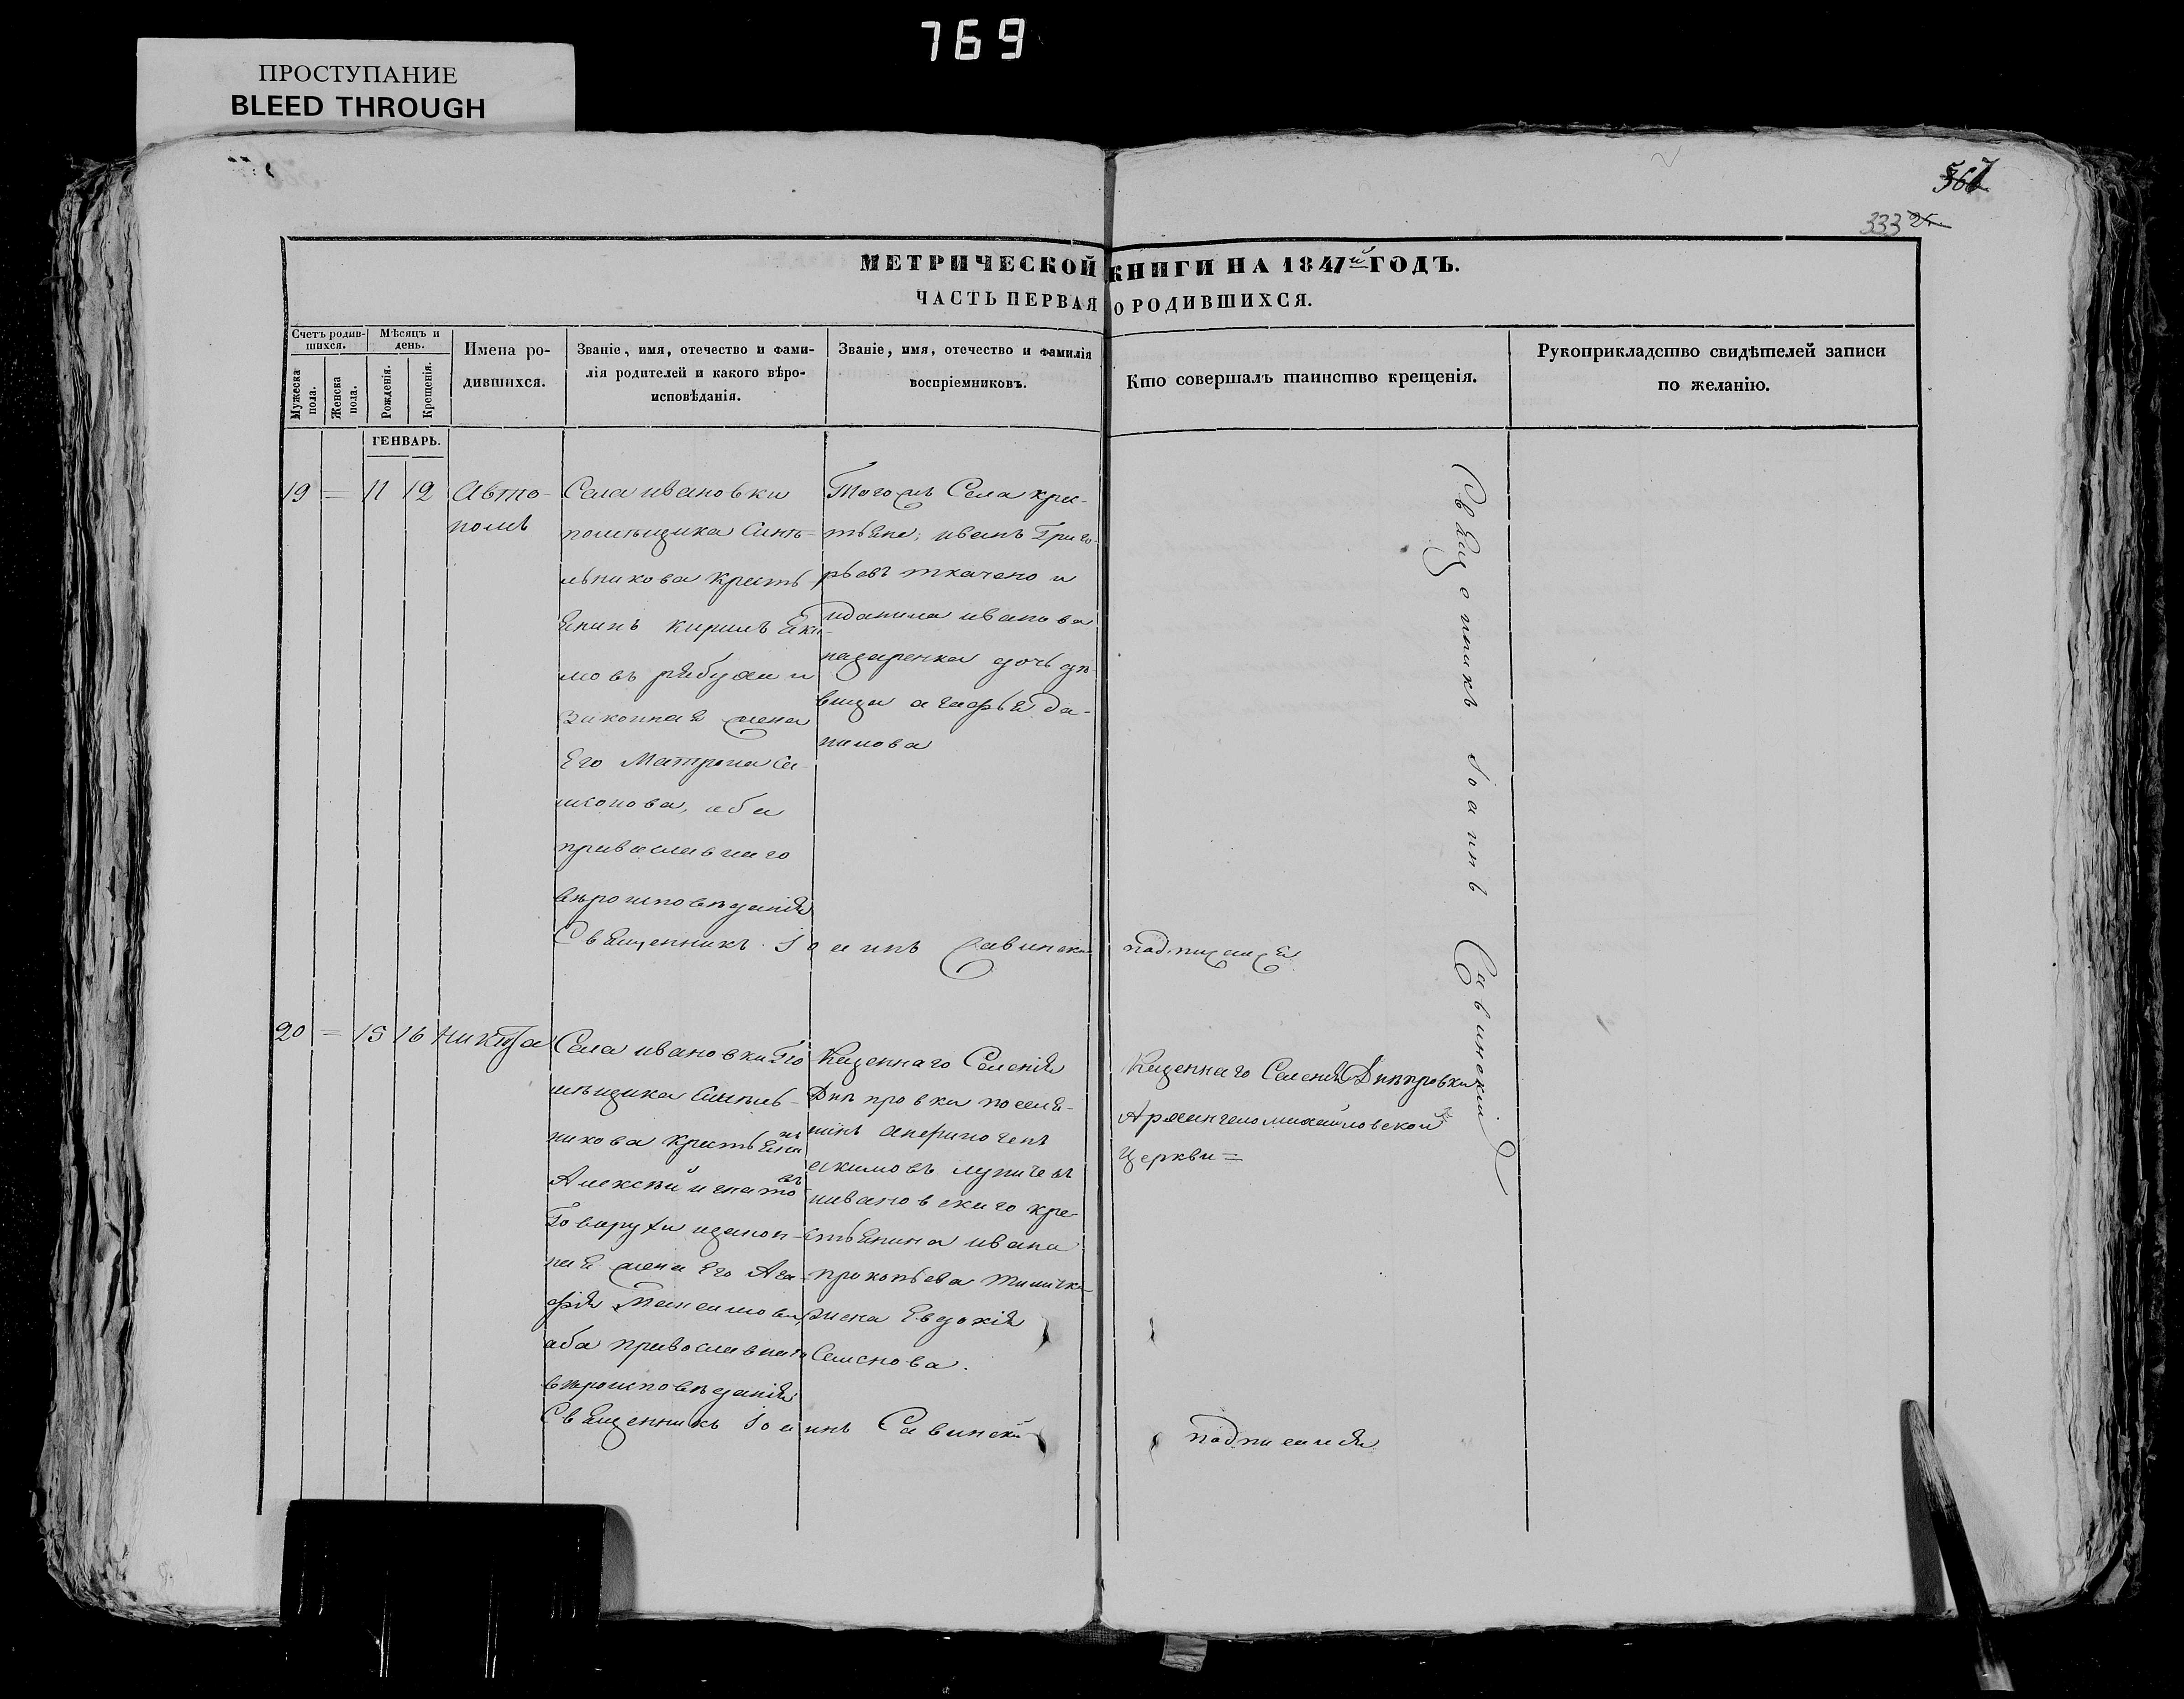 769
ПРОСТУПАНИЕ
BLEED THROUGH
333
МЕТРИЧЕСКОЙ КНИГИ НА 1847й ГОДЪ.
ЧАСТЬ ПЕРВАЯ О РОДИВШИХСЯ.
Счетъ родив-
шихся.
Мужеска
пола.
Женска
пола.
Мѣсяцъ и
день.
Рожденія.
Крещенія.
Имена ро-
дившихся.
Званіе, имя, отечество и фами-
лія родителей и какого вѣро-
исповѣданія.
Званіе, имя, отечество и фамилія
воспріемниковъ.
Кто совершалъ таинство крещенія.
Рукоприкладство свидѣтелей записи
по желанію.
ГЕНВАРЬ.
19 = 11 12
Авто-
номъ
Села ивановки
помѣщика Синѣ=
льникова Крестъ
янинъ Кирилъ Яки
мовъ и
законная жена
Его Матрона Си-
монова, оба
православнаго
вѣроисповѣданія
Тогожъ Села кре-
стьяне; иванъ Григо-
рьевъ ткаченко и
Данила иванова
назаренка дочь дѣ-
вица агафья Да-
нилова
Священникъ Іоаннъ Савински подписался
Священникъ Іоаннъ Савинскій
20 = 15 16
Никита
Села ивановки По
мѣщика Синѣль-
никова Крестьянинъ
Алексѣй игнатовъ
Говоруха изакон-
ная жена Его Ага-
фія
оба православнаго
вѣроисповѣданія
Казеннаго Селенія
Днѣпровки поселя-
нинъ
якимовъ
иивановскаго кре-
стьянина ивана
прокопьева
жена Евдокія
Семенова.
Казеннаго Селенія Днѣпровки
Архангеломихайловской
Церкви=
Священникъ Іоаннъ Савинскій подписался